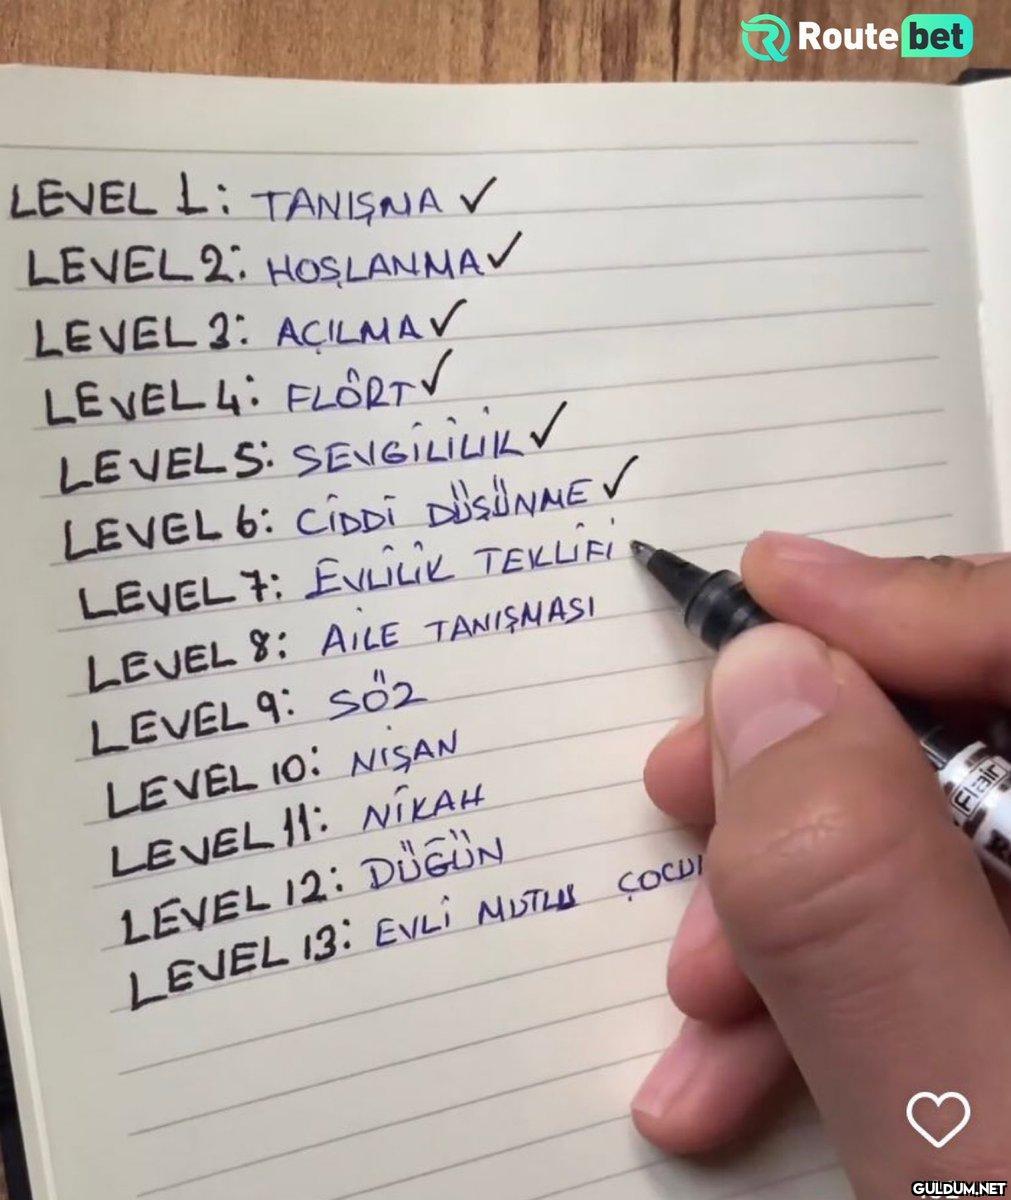 Routebet
LEVEL 1: TANIŞMA ✓
LEVEL 2: HOŞLANMA ✓
LEVEL 3: AÇILMA ✓
LEVEL 4: FLÖRT ✓
LEVEL 5: SEVGİLİLİK ✓
LEVEL 6: CİDDİ DÜŞÜNME ✓
LEVEL 7: EVLİLİK TEKLİFİ
LEVEL 8: AİLE TANIŞMASI
LEVEL 9: SÖZ
LEVEL 10: NİŞAN
LEVEL 11: NİKAH
LEVEL 12: DÜĞÜN
LEVEL 13: EVLİ MUTLU ÇOCU
Flair
GULDUM.NET